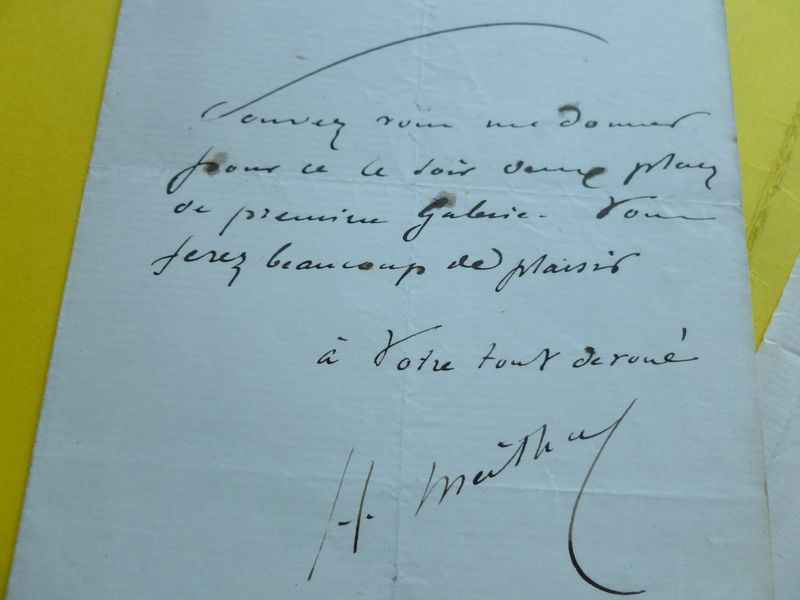 Pouvez vous me donner
pour ce le soir deux places
de première Galerie. Vous
ferez beaucoup de plaisir
à Votre tout dévoué
H.